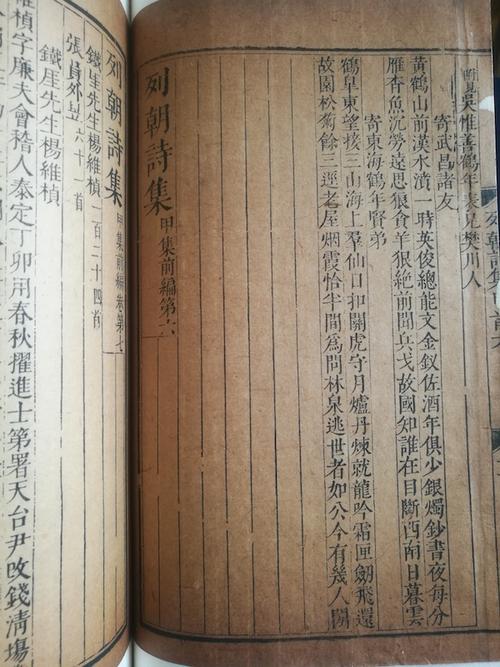 附見吳惟善鶴年表兄樊川人
寄武昌諸友
黃鶴山前漢水濆一時英俊總能文金釵佐酒年俱少銀燭鈔書夜每分
雁杳魚沉勞遠思狼食羊狠絶前聞兵戈故國知誰在目斷西南日暮雲
寄東海鶴年賢弟
鶴皐東望接三山海上羣仙日扣關虎守月爐丹煉就龍吟霜匣劒飛還
故園松菊餘三逕老屋烟霞恰半間為問林泉逃世者如公今有幾人閒
列朝詩集甲集前編第六
列朝詩集甲集前編卷第七
鐵厓先生楊維楨二百二十四首
張員外昱六十一首
鐵厓先生楊維楨
維楨字廉夫會稽人泰定丁卯用春秋擢進士第署天台尹改錢清場